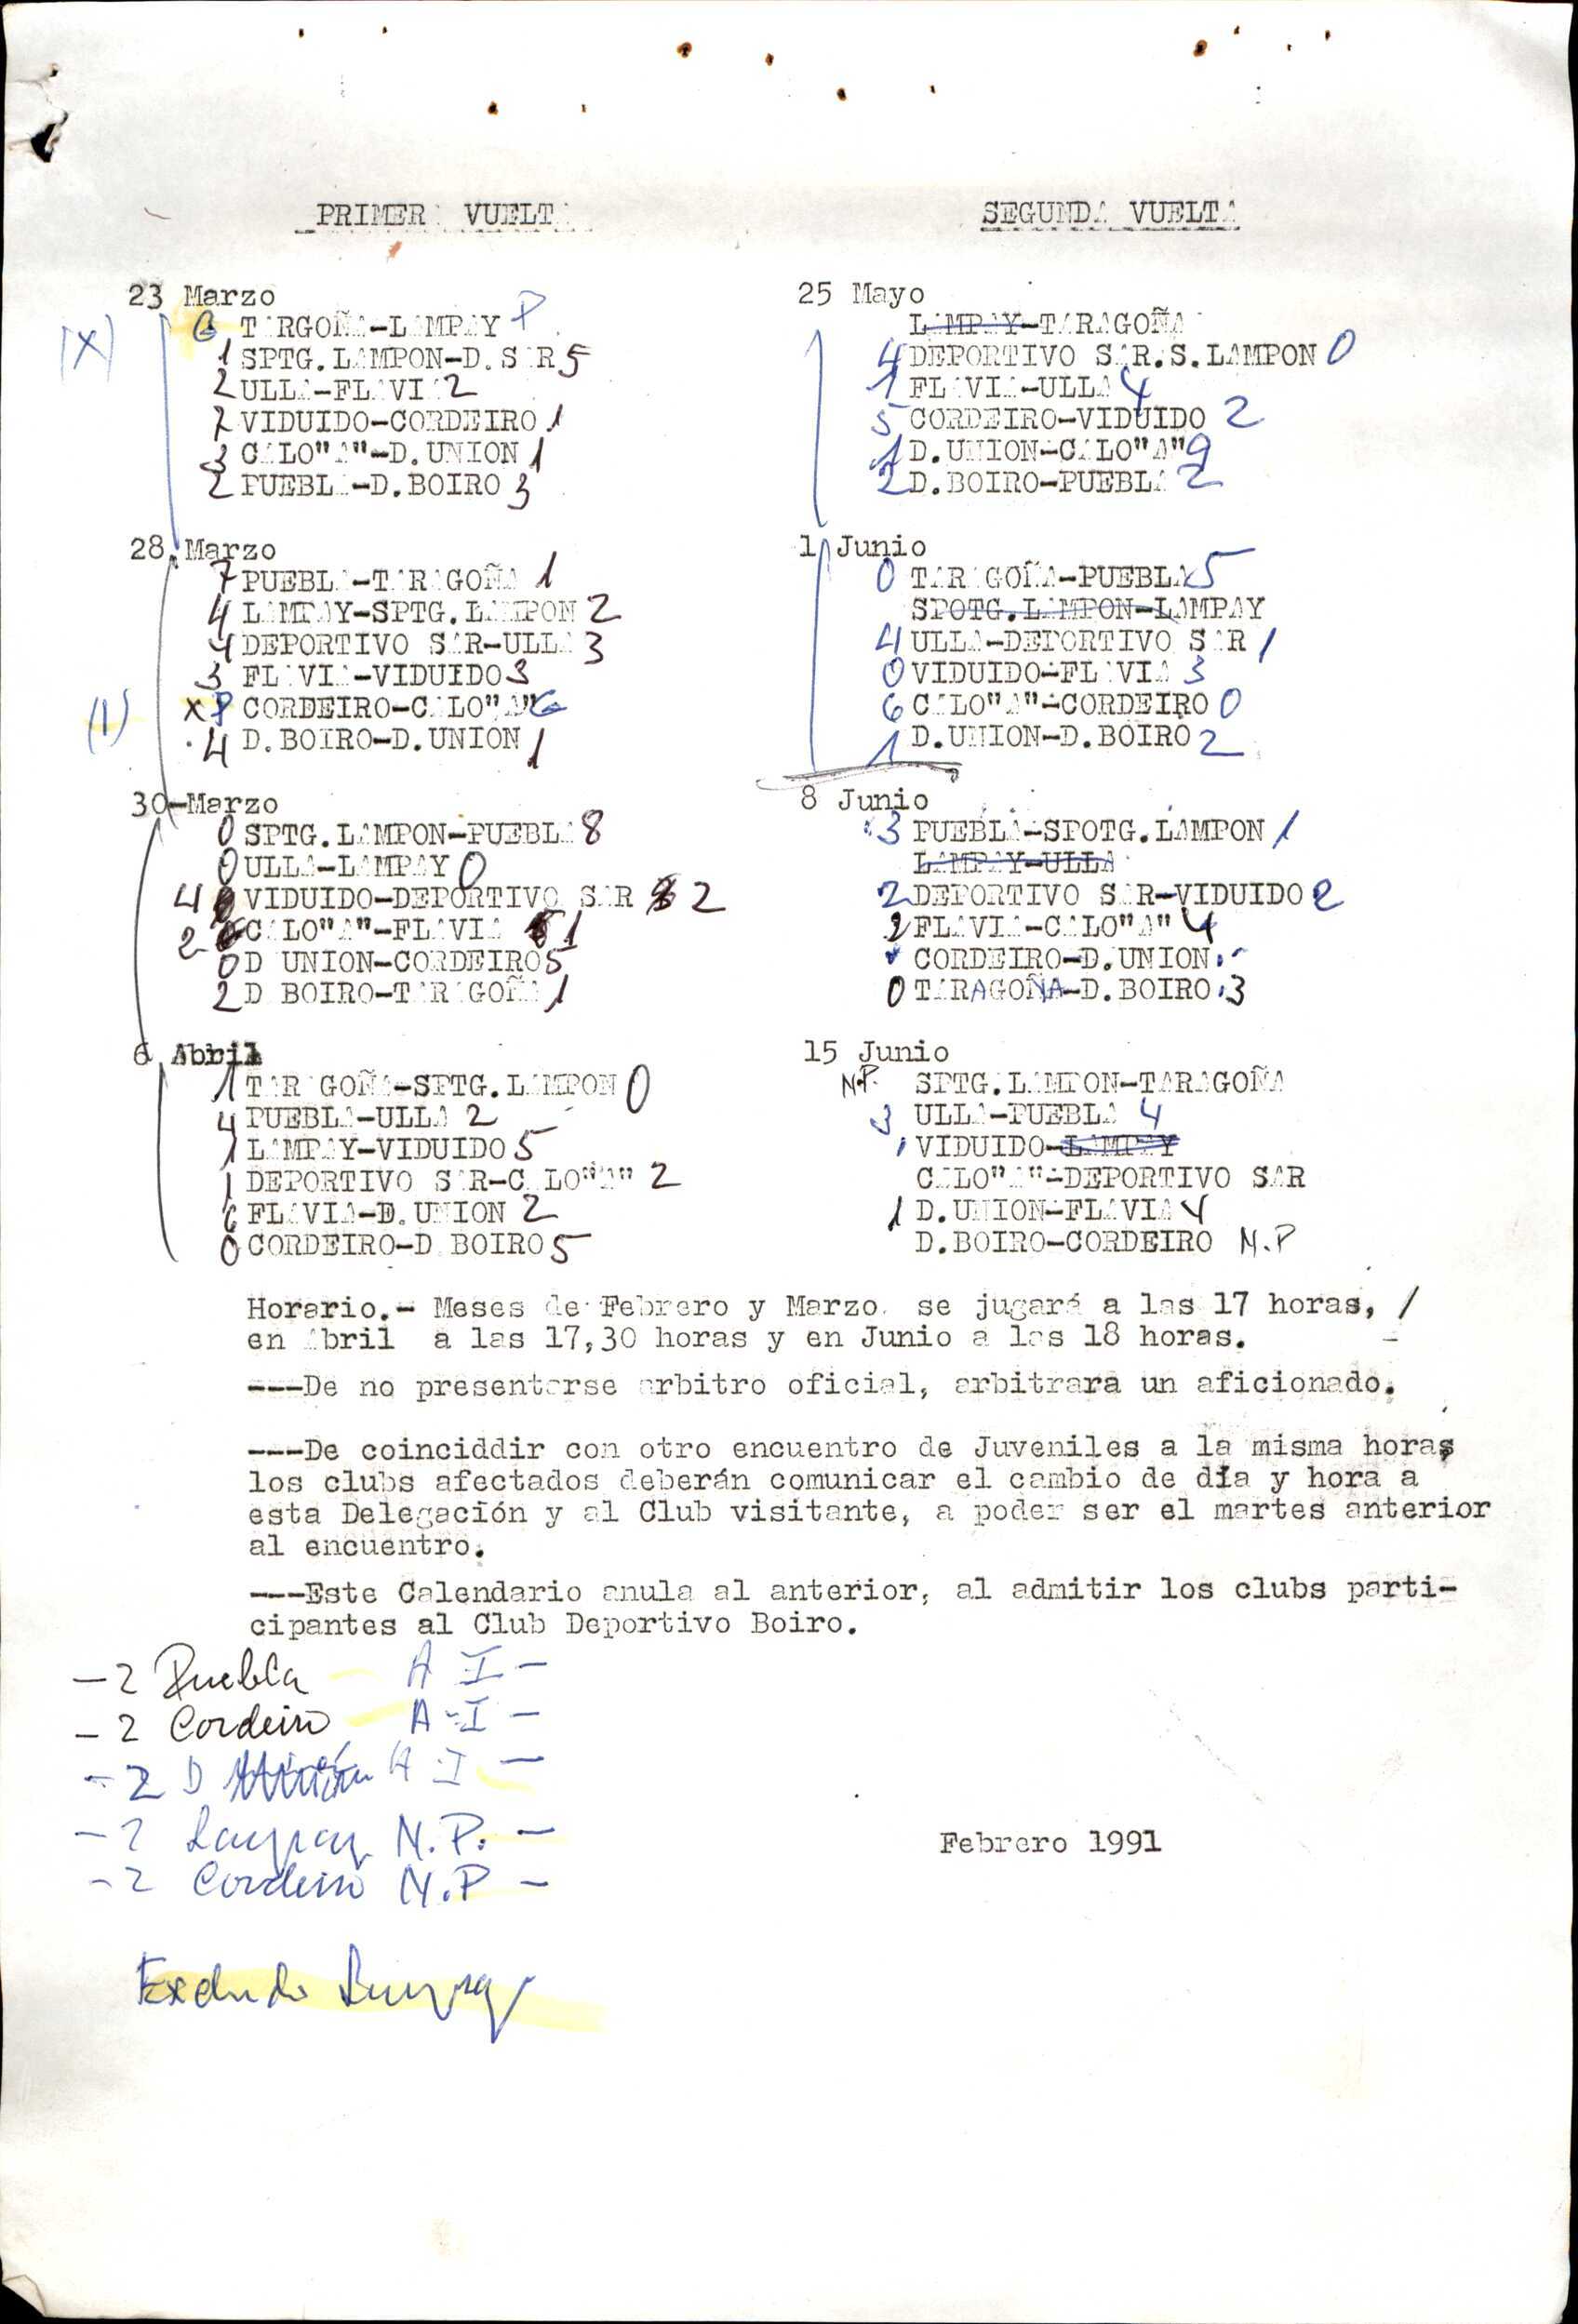 PRIMERA VUELTA
23 Marzo
(X)
G TARGOÑA-LAMPAY P
1 SPTG.LAMPON-D.SAR 5
2 ULLA-FLAVIA 2
7 VIDUIDO-CORDEIRO 1
3 CALO"A"-D.UNION 1
2 PUEBLA-D.BOIRO 3
28 Marzo
7 PUEBLA-TARAGOÑA 1
4 LAMPAY-SPTG.LAMPON 2
4 DEPORTIVO SAR-ULLA 3
3 FLAVIA-VIDUIDO 3
(1) X P CORDEIRO-CALO"A" G
4 D.BOIRO-D.UNION 1
30-Marzo
0 SPTG.LAMPON-PUEBLA 8
0 ULLA-LAMPAY 0
4 VIDUIDO-DEPORTIVO SAR 2
2 CALO"A"-FLAVIA 1
0 D UNION-CORDEIRO 5
2 D BOIRO-TARAGOÑA 1
6 Abril
1 TARAGOÑA-SPTG.LAMPON 0
4 PUEBLA-ULLA 2
1 LAMPAY-VIDUIDO 5
1 DEPORTIVO SAR-CALO"A" 2
6 FLAVIA-D.UNION 2
0 CORDEIRO-D BOIRO 5
SEGUNDA VUELTA
25 Mayo
LAMPAY-TARAGOÑA
4 DEPORTIVO SAR.S.LAMPON 0
1 FLAVIA-ULLA 4
5 CORDEIRO-VIDUIDO 2
1 D.UNION-CALO"A" 9
2 D.BOIRO-PUEBLA 2
1 Junio
0 TARAGOÑA-PUEBLA 5
SPOTG.LAMPON-LAMPAY
4 ULLA-DEPORTIVO SAR 1
0 VIDUIDO-FLAVIA 3
6 CALO"A"-CORDEIRO 0
1 D.UNION-D.BOIRO 2
8 Junio
3 PUEBLA-SPOTG.LAMPON 1
LAMPAY-ULLA
2 DEPORTIVO SAR-VIDUIDO 2
2 FLAVIA-CALO"A" 4
CORDEIRO-D.UNION
0 TARAGOÑA-D.BOIRO 3
15 Junio
N.P. SPTG.LAMPON-TARAGOÑA
3 ULLA-PUEBLA 4
VIDUIDO-LAMPAY
CALO"A"-DEPORTIVO SAR
1 D.UNION-FLAVIA 4
D.BOIRO-CORDEIRO N.P
Horario.- Meses de Febrero y Marzo se jugará a las 17 horas, /
en Abril a las 17,30 horas y en Junio a las 18 horas.
---De no presentarse arbitro oficial, arbitrara un aficionado.
---De coinciddir con otro encuentro de Juveniles a la misma horas
los clubs afectados deberán comunicar el cambio de día y hora a
esta Delegación y al Club visitante, a poder ser el martes anterior
al encuentro.
---Este Calendario anula al anterior, al admitir los clubs parti-
cipantes al Club Deportivo Boiro.
-2 Puebla A I -
-2 Cordeiro A-I -
-2 D Unión A I -
-2 Lampay N.P. -
-2 Cordeiro N.P -
Febrero 1991
Excluido Lampay